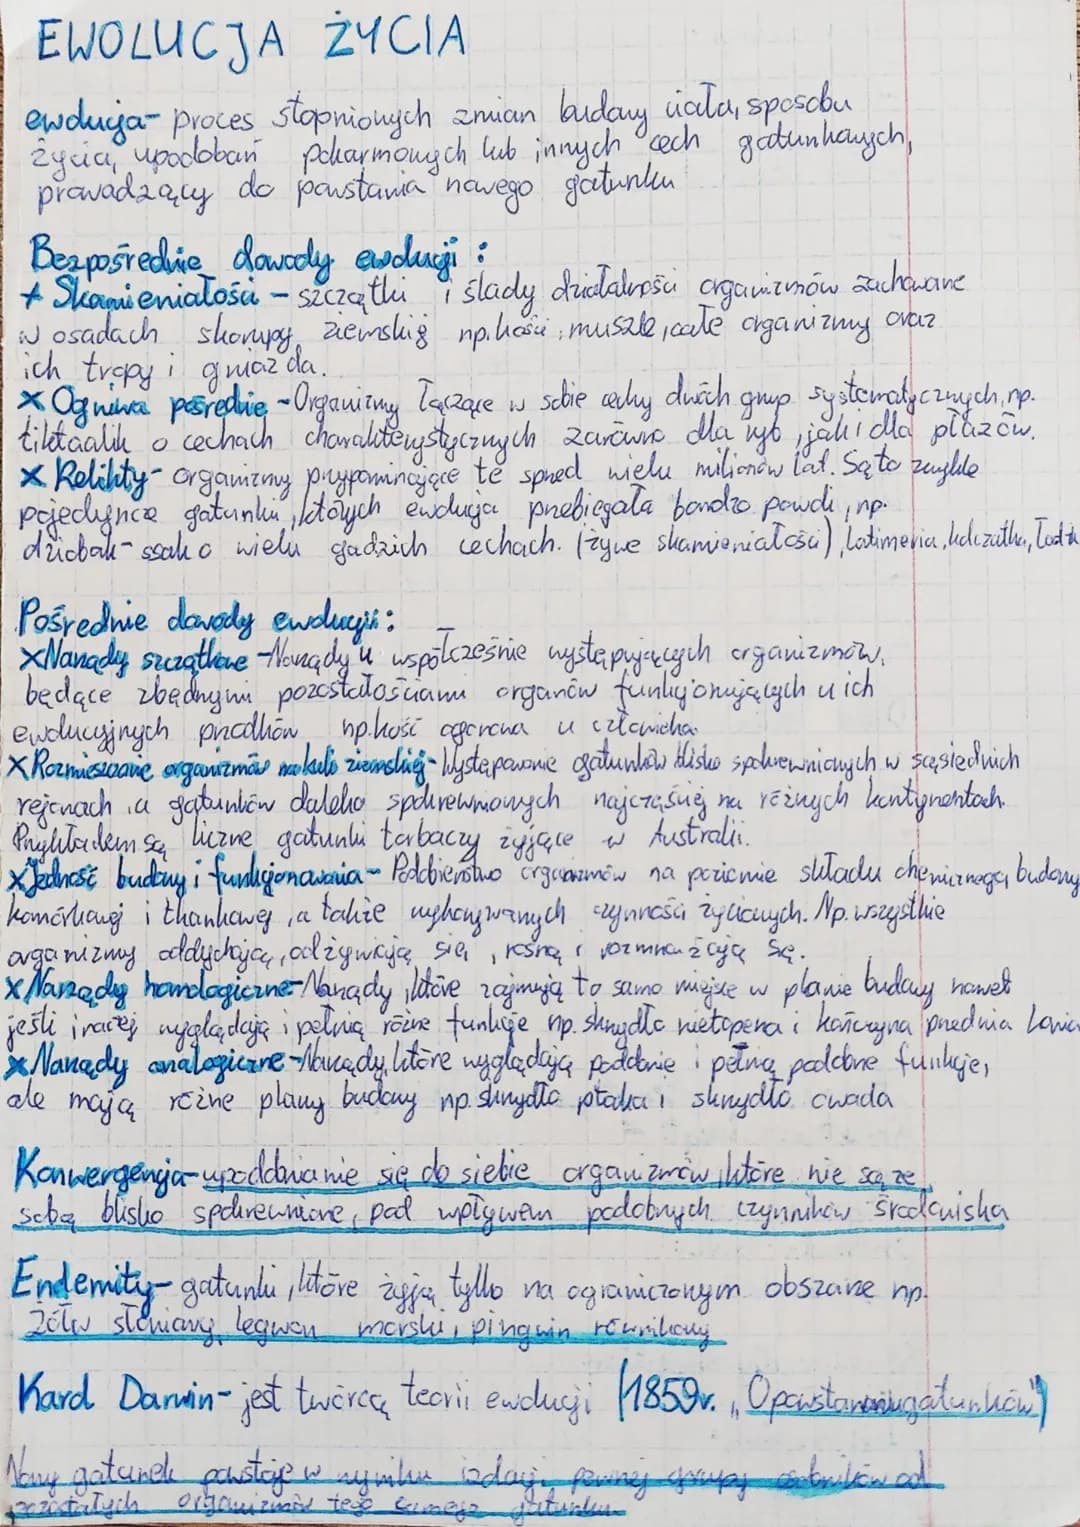 EWOLUCJA ŻYCIA
ewolucja- proces stopniowych zmian budowy ciała, sposobu
życia, upodobań pokarmowych lub innych cech gatunkowych,
prowadzący do powstania nowego gatunku
Bezpośrednie dowody ewolucji:
x Skamieniałości - szczątki i ślady działalności organizmów zachowane
w osadach skorupy ziemskiej np. kości, muszle, całe organizmy oraz
ich tropy i gniazda.
x Ogniwa pośrednie - Organizmy łączące w sobie cechy dwóch grup systematycznych, np.
tiktaalik o cechach charakterystycznych zarówno dla ryb, jak i dla płazów.
x Relikty- organizmy przypominające te sprzed wielu milionów lat. Są to zwykle
pojedyncze gatunki, których ewolucja przebiegała bardzo powoli, np.
dziobak- ssak o wielu gadzich cechach. (żywe skamieniałości), latimeria, kolczatka,
Pośrednie dowody ewolucji:
x Narządy szczątkowe - Narządy u współcześnie występujących organizmów,
będące zbędnymi pozostałościami organów funkcjonujących u ich
ewolucyjnych przodków np. kość ogonowa u człowieka
x Rozmieszczenie organizmów na kuli ziemskiej- Występowanie gatunków blisko spokrewnionych w sąsiednich
rejonach, a gatunków daleko spokrewnionych najczęściej na różnych kontynentach.
Przykładem są liczne gatunki torbaczy żyjące w Australii.
x Jedność budowy i funkcjonowania- Podobieństwo organizmów na poziomie składu chemicznego, budowy
komórkowej i tkankowej, a także wykonywanych czynności życiowych. Np. wszystkie
organizmy oddychają, odżywiają się, rosną i rozmnażają się.
x Narządy homologiczne- Narządy, które zajmują to samo miejsce w planie budowy nawet
jeśli inaczej wyglądają i pełnią różne funkcje np. skrzydło nietoperza i kończyna przednia konia
x Narządy analogiczne - Narządy, które wyglądają podobnie i pełnią podobne funkcje,
ale mają różne plany budowy np. skrzydło ptaka i skrzydło owada
Konwergencja- upodobnianie się do siebie organizmów, które nie są ze
sobą blisko spokrewnione, pod wpływem podobnych czynników środowiska
Endemity- gatunki, które żyją tylko na ograniczonym obszarze np.
żółw słoniowy, legwan morski, pingwin równikowy
Karol Darwin- jest twórcą teorii ewolucji (1859r. "O powstawaniu gatunków")
Nowy gatunek powstaje w wyniku izolacji pewnej grupy osobników od
pozostałych organizmów tego samego gatunku